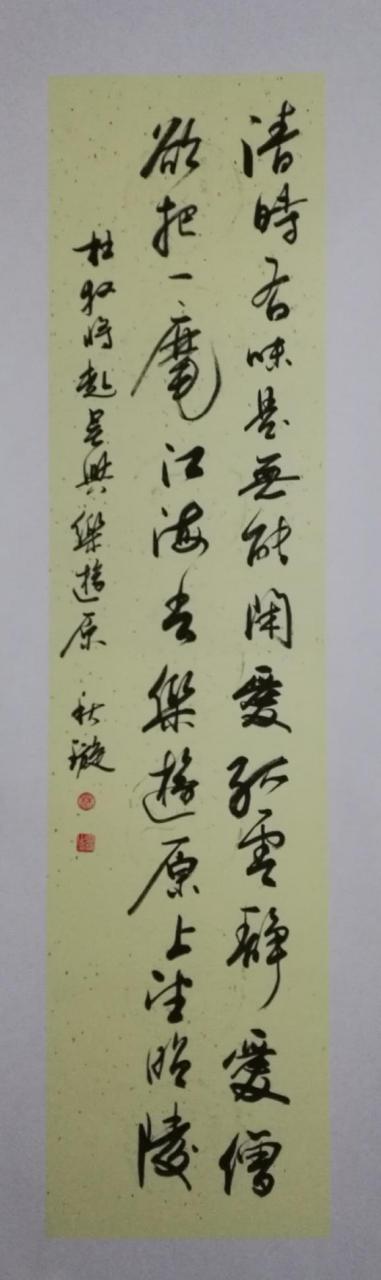 清時有味是無能閑愛孤雲靜愛僧
欲把一麾江海去樂遊原上望昭陵
杜牧將赴吳興樂遊原 秋璇